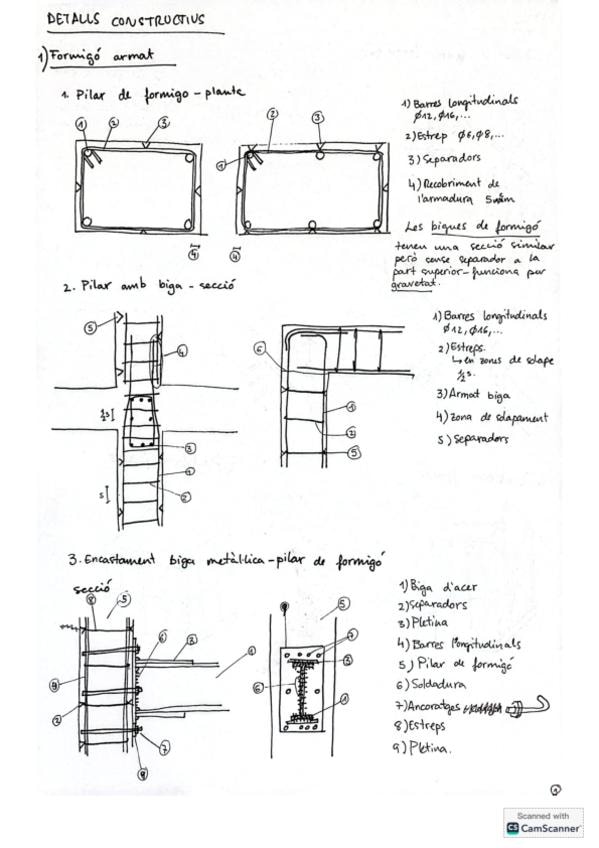 DETALLS CONSTRUCTIUS
1) Formigó armat
1. Pilar de formigo - planta
1 2 3
2 3
1
4 4
1) Barres longitudinals
Ø12, Ø16,...
2) Estrep Ø6, Ø8,...
3) Separadors
4) Recobriment de
l'armadura 5
Les bigues de formigó
tenen una secció similar
però sense separador a la
part superior - funciona per
gravetat.
2. Pilar amb biga - secció
5
4
½s
3
1
2
s
6
1
2
5
1) Barres longitudinals
Ø12, Ø16,...
2) Estreps.
↳ en zones de solape
½s.
3) Armat biga
4) Zona de solapament
5) Separadors
3. Encastament biga metàl·lica - pilar de formigó
secció
8 5
6 3
1
2
7
9
5
7
3
6
1
1) Biga d'acer
2) Separadors
3) Pletina
4) Barres longitudinals
5) Pilar de formigó
6) Soldadura
7) Ancoratges
8) Estreps
9) Pletina.
1
Scanned with
CS CamScanner